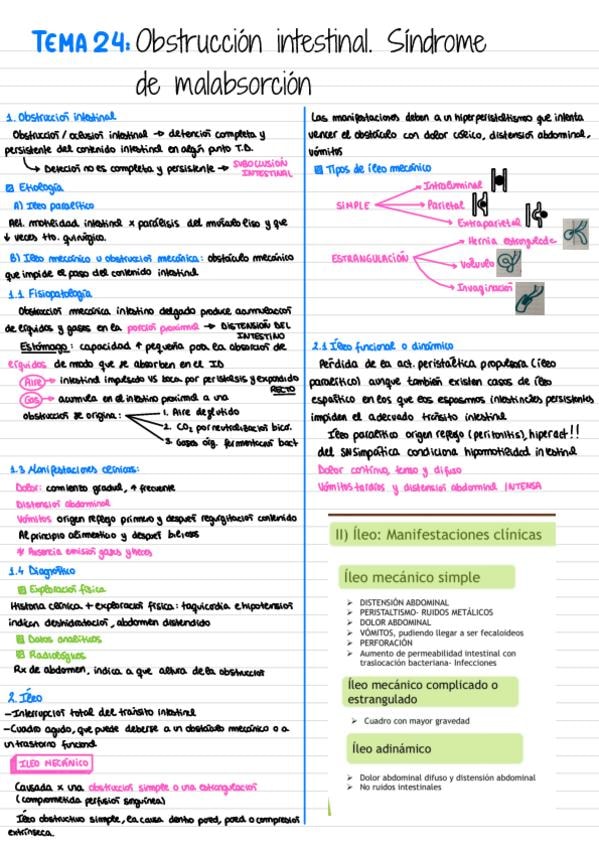 TEMA 24: Obstrucción intestinal. Síndrome
de malabsorción
1. Obstrucción intestinal
Obstrucción / oclusión intestinal → detención completa y
persistente del contenido intestinal en algún punto T.D.
↳ Detención no es completa y persistente → SUBOCLUSIÓN
INTESTINAL
Etiología
A) Íleo paralítico
Alt. motilidad intestinal x parálisis del músculo liso y que
↓ veces tto. quirúgico.
B) Íleo mecánico u obstrucción mecánica: obstáculo mecánico
que impide el paso del contenido intestinal
1.1 Fisiopatología
Obstrucción mecánica intestino delgado produce acumulación
de líquidos y gases en la porción proximal → DISTENSIÓN DEL
INTESTINO
Estómago: capacidad ↑ pequeña para la absorción de
líquidos de modo que se absorben en el ID
Aire → intestinal impulsado vs boca por peristalsis y expandido
RECTO
Gas → acumula en el intestino proximal a una
obstrucción se origina: 1. Aire deglutido
2. CO₂ por neutralización bicar.
3. Gases orig. fermentación bact
1.3 Manifestaciones clínicas:
Dolor: comiento gradual, ↑ frecuente
Distensión abdominal
Vómitos origen reflejo primero y después regurgitación contenido
Al principio alimenticio y después biliosos
* Ausencia emisión gases y heces
1.4 Diagnóstico
Exploración física
Historia clínica + exploración física: taquicardia e hipotensión
indican deshidratación, abdomen distendido
Datos analíticos
Radiológicos
Rx de abdomen, indica a que altura de la obstrucción
2. Íleo
- Interrupción total del tránsito intestinal
- Cuadro agudo, que puede deberse a un obstáculo mecánico o a
un trastorno funcional
ILEO MECÁNICO
Causada x una obstrucción simple o una estrangulación
(comprometida perfusión sanguínea)
Íleo obstructivo simple, la causa dentro pared, pared o compresión
extrínseca.
Las manifestaciones deben a un hiperperistaltismo que intenta
vencer el obstáculo con dolor cólico, distensión abdominal,
vómitos
Tipos de íleo mecánico
SIMPLE
Intraluminal
Parietal
Extraparietal
ESTRANGULACIÓN
Hernia estrangulada
Volvulo
Invaginación
2.1 Íleo funcional o dinámico
Pérdida de la act. peristáltica propulsora (íleo
paralítico) aunque también existen casos de íleo
espástico en los que los espasmos intestinales persistentes
impiden el adecuado tránsito intestinal
Íleo paralítico origen reflejo (peritonitis), hiperact!!
del SNSimpática condiciona hipomotilidad intestinal
Dolor continuo, tenso y difuso
Vómitos tardíos y distensión abdominal INTENSA
II) Íleo: Manifestaciones clínicas
Íleo mecánico simple
➤ DISTENSIÓN ABDOMINAL
➤ PERISTALTISMO- RUIDOS METÁLICOS
➤ DOLOR ABDOMINAL
➤ VÓMITOS, pudiendo llegar a ser fecaloideos
➤ PERFORACIÓN
➤ Aumento de permeabilidad intestinal con
traslocación bacteriana- Infecciones
Íleo mecánico complicado o
estrangulado
➤ Cuadro con mayor gravedad
Íleo adinámico
➤ Dolor abdominal difuso y distensión abdominal
➤ No ruidos intestinales